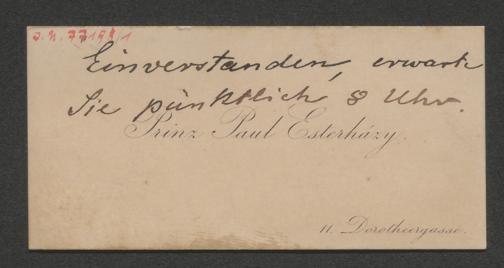 J.N. 77191/1
Einverstanden, erwarte
Sie pünktlich 8 Uhr.
Prinz Paul Esterházy.
11. Dorotheergasse.